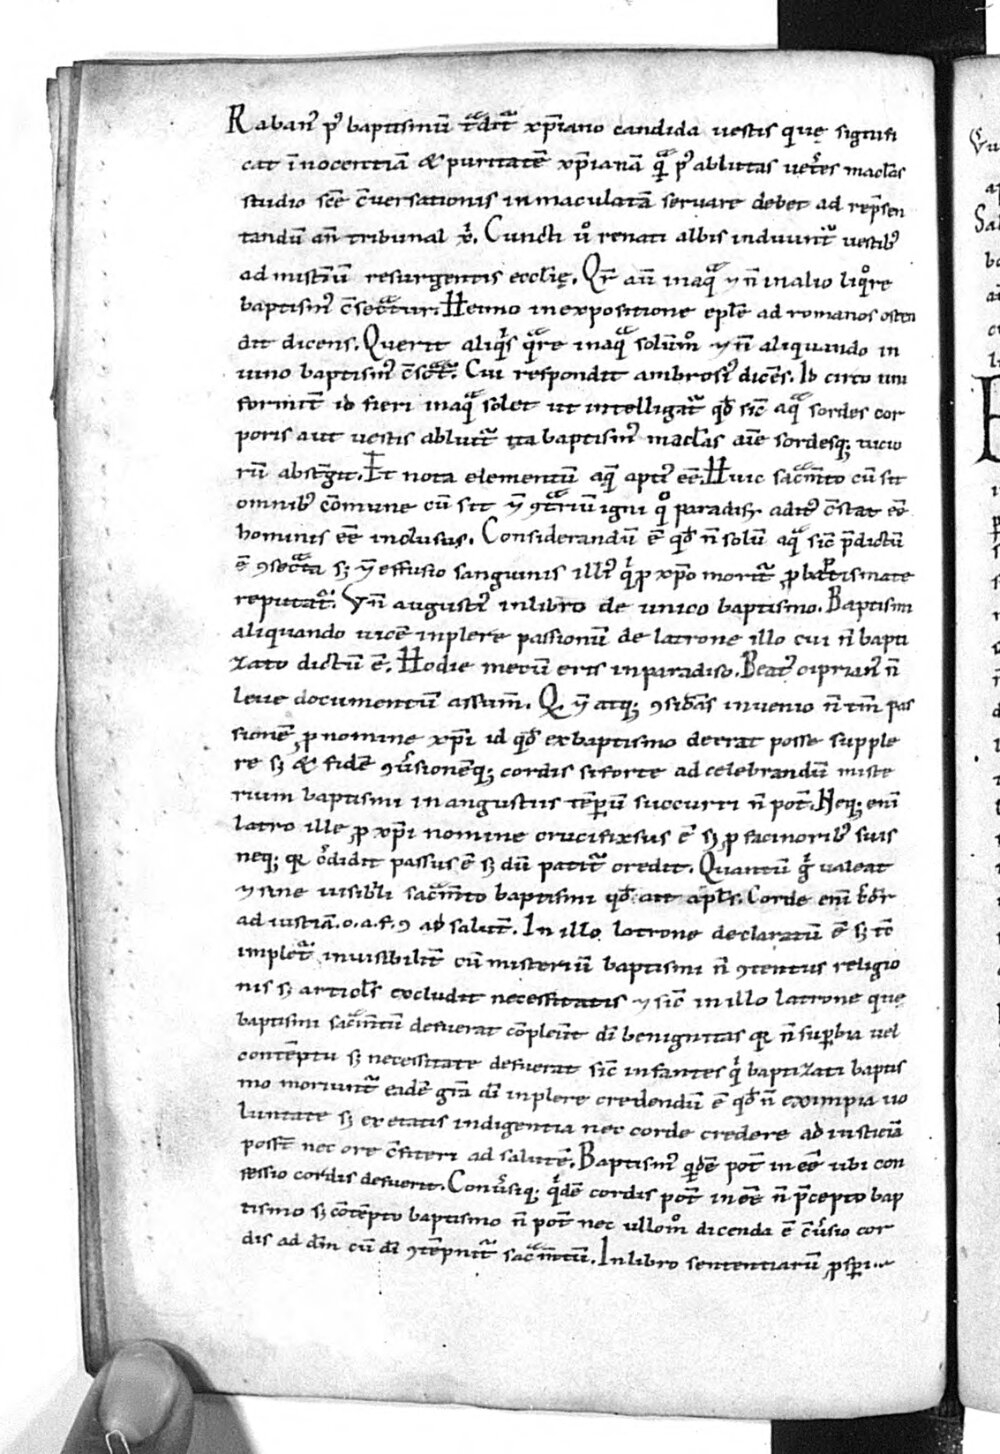 Raban᷒ p᷒ baptismū tͣdit᷑ xp̄iano candida uestis quę signifi
cat īnocentiā & puritatē xp̄ianā qͣ p᷒ ablutas uet̄es macl̄as
studio sc̄e c̄uersationis inmaculatā seruare debet ad rep̄sen
tandū an̄ tribunal x̄. Cuncti ů renati albis induunt᷑ uestib᷒
ad mist̄iū resurgentis eccl̄ię. Qr̄ aū inaqͣ & n̄ inalio liq̊re
baptism᷒ c̄secͣtur. Heimo inexpositione epl̄e ad romanos osten
dit dicens. Querit aliqⁱs qͣre inaqͣ solūm̊ & n̄ aliquando in
uino baptism᷒ c̄secͣt᷑. Cui respondit ambrosi᷒ dicēs. Id circo uni
formit̄ id fieri inaqͣ solet ut intelligat᷑ qđ sic̄ aqͣ sordes cor
poris aut uestis abluit᷑ ita baptism᷒ macl̄as aīe sordesq; uicio
rū abst̄git. Et nota elementū aqͣ apti᷒ eē. Huic sacͣm̄to cū sit
omnib᷒ c̄omune cū sit & 9tͣriū igni q̊ paradisi adit᷒ c̄stat ex̄
hominis eē inclusus. Considerandū ē qđ n̄ solū aqͣ sic̄ p̄dictū
ē 9secͣta s; & effusio sanguinis illi᷒ qⁱ ꝓ xp̄o morit᷑ ꝓ baptismate
reputat᷑. Vn̄ augusti᷒ inlibro de unico baptismo. Baptismi
aliquando uicē inplere passionū de latrone illo cui n̄ bapti
zato dictū ē. Hodie mecū eris inparadiso. Beat᷒ ciprian᷒ n̄
leue documentū assum̄. Q & atq; 9sid̄as inuenio n̄ tm̄ pas
sionē ꝓ nomine xp̄i id qđ exbaptismo deerat posse supple
re s; & fidē 9ūsionēq; cordis siforte ad celebrandū miste
rium baptismi inangustiis tēpꝝ succurri n̄ pot̄. Neq; eni̅
latro ille ꝓ xp̄i nomine crucifixsus ē s; ꝓ facinorib᷒ suis
neq; qr c̄didit passus ē s; dū patit᷑ credit. Quantū gͥ ualeat
& sine uisibili sacͣm̄to baptismi qđ ait apl̄s. Corde eni̅ c̄dit᷑
ad iustiā. o. a. f. 9 ad salut̄. In illo latrone declaratū ē s; tc̄
implet᷑ inuisibilit̄ cū misteriū baptismi n̄ 9tentus religio
nis s; articl̄s excludit necessitatis & sic̄ in illo latrone que
baptismi sacͣm̄tū defuerat c̄pleuit dī benignitas qr n̄ sup̄bia uel
contēptu s; necessitate defuerat sic̄ infantes qⁱ baptizati baptis
mo moriunt᷑ eadē gr̄a dī inplere credendū ē qđ n̄ eximpia uo
luntate s; exetatis indigentia nec corde credere ad iusticiā
posst̄ nec ore c̄fiteri ad salutē. Baptism᷒ qⁱdē pot̄ ineē ubi con
fessio cordis defuerit. Conūsiq; qⁱdē cordis pot̄ ineē n̄ p̄cepto bap
tismo s; cōtēpto baptismo n̄ pot̄ nec ullom̊ dicenda ē c̄ūsio cor
dis ad dm̄ cū dī 9tēpnit᷑ sacͣm̄tū. Inlibro sententiarū ꝓsp̄i